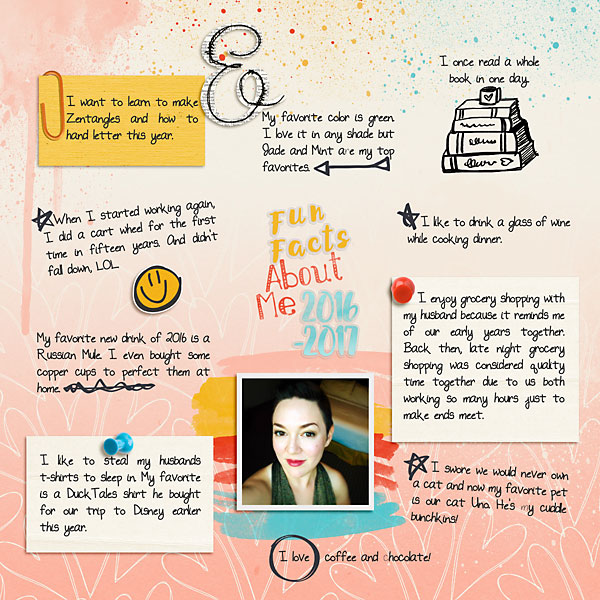 I want to learn to make
Zentangles and how to
hand letter this year.
&
My favorite color is green.
I love it in any shade but
Jade and Mint are my top
favorites.
I once read a whole
book in one day.
When I started working again,
I did a cart wheel for the first
time in fifteen years. And didn't
fall down, LOL.
Fun
Facts
About
Me 2016
-2017
I like to drink a glass of wine
while cooking dinner.
My favorite new drink of 2016 is a
Russian Mule. I even bought some
copper cups to perfect them at
home.
I enjoy grocery shopping with
my husband because it reminds me
of our early years together.
Back then, late night grocery
shopping was considered quality
time together due to us both
working so many hours just to
make ends meet.
I like to steal my husbands
t-shirts to sleep in. My favorite
is a DuckTales shirt he bought
for our trip to Disney earlier
this year.
I swore we would never own
a cat and now my favorite pet
is our cat Uno. He's my cuddle
bunchkins!
I love coffee and chocolate!